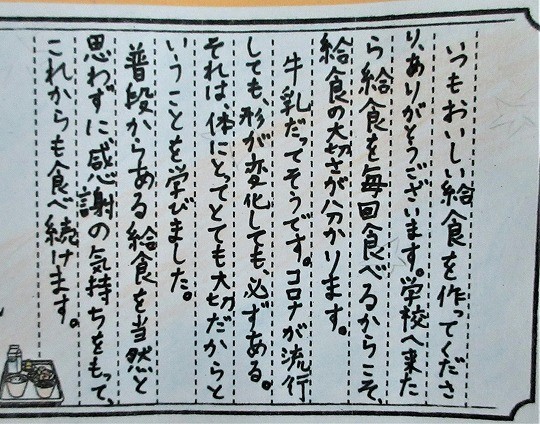 いつもおいしい給食を作ってくださ
り、ありがとうございます。学校へ来た
ら給食を毎回食べるからこそ、
給食の大切さが分かります。
牛乳だってそうです。コロナが流行
しても、形が変化しても、必ずある。
それは、体にとってとても大切だからと
いうことを学びました。
普段からある給食を当然と
思わずに感謝の気持ちをもって、
これからも食べ続けます。